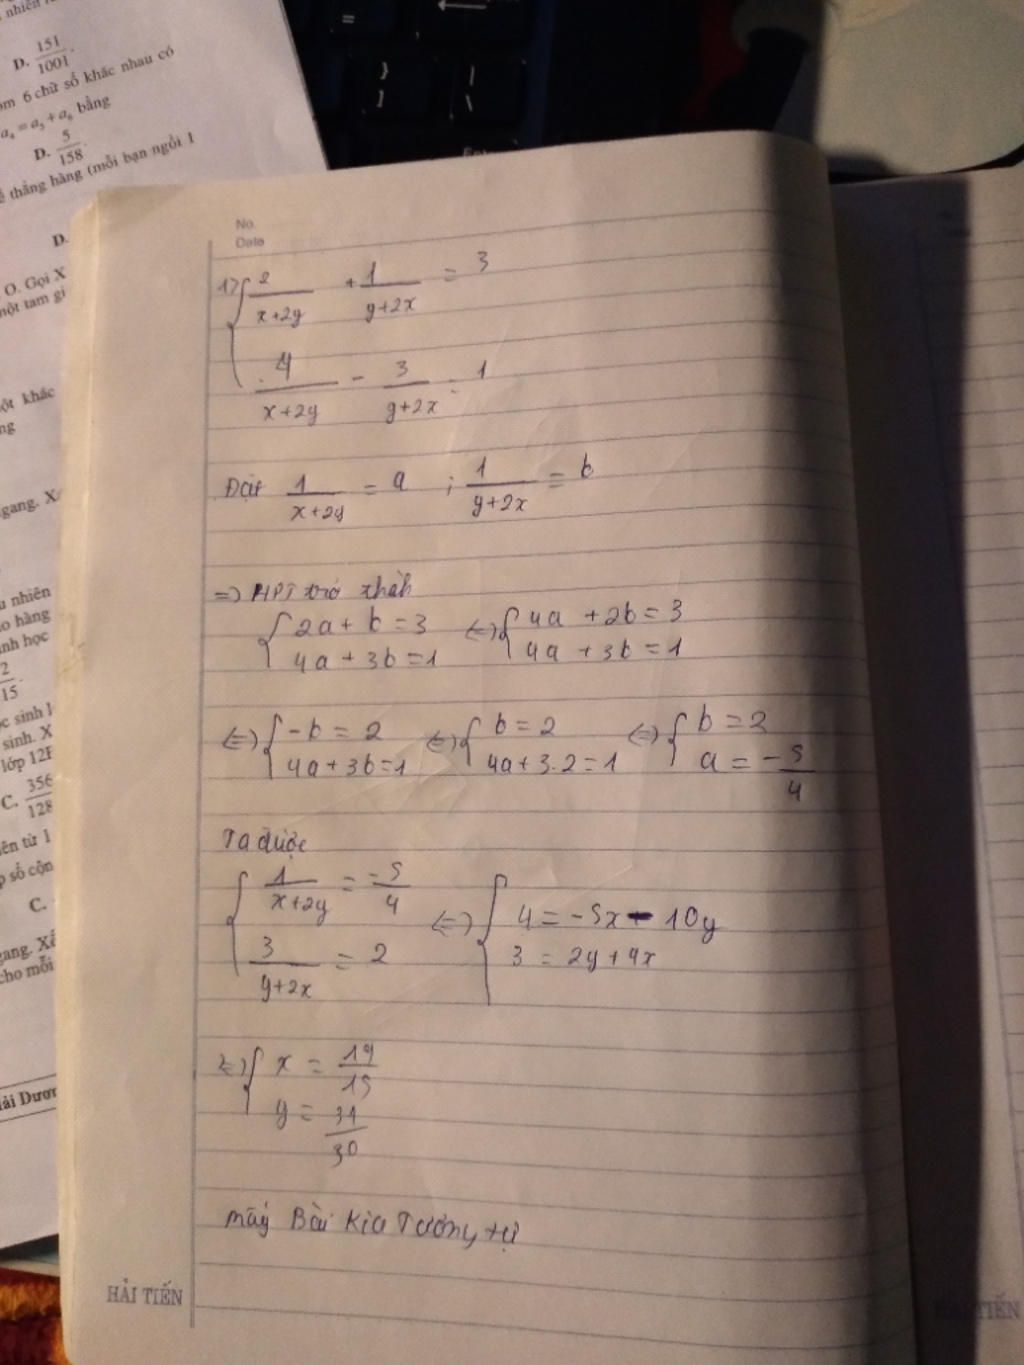 nhiên
D. 151/1001.
6 chữ số khác nhau có
a₄ = a₅ + a₆ bằng
D. 5/158.
thẳng hàng (mỗi bạn ngồi 1
D.
O. Gọi X
một tam gi
khác
gang. X
nhiên
hàng
học
2/15.
sinh
sinh. X
lớp 12
C. 356/128
từ 1
số cộn
C.
gang. Xế
cho mỗi
Hải Dươn
No
Date
1) { 2/(x+2y) + 1/(y+2x) = 3
4/(x+2y) - 3/(y+2x) = 1
Đặt 1/(x+2y) = a ; 1/(y+2x) = b
=> HPT trở thành
{ 2a + b = 3 <=> { 4a + 2b = 3
4a + 3b = 1 4a + 3b = 1
<=> { -b = 2 <=> { b = 2 <=> { b = 2
4a + 3b = 1 4a + 3.2 = 1 a = -5/4
Ta được
{ 1/(x+2y) = -5/4 <=> { 4 = -5x - 10y
3/(y+2x) = 2 3 = 2y + 4x
<=> { x = 19/15
y = 31/30
mấy Bài kia Tương tự
HẢI TIẾN
HẢI TIẾN